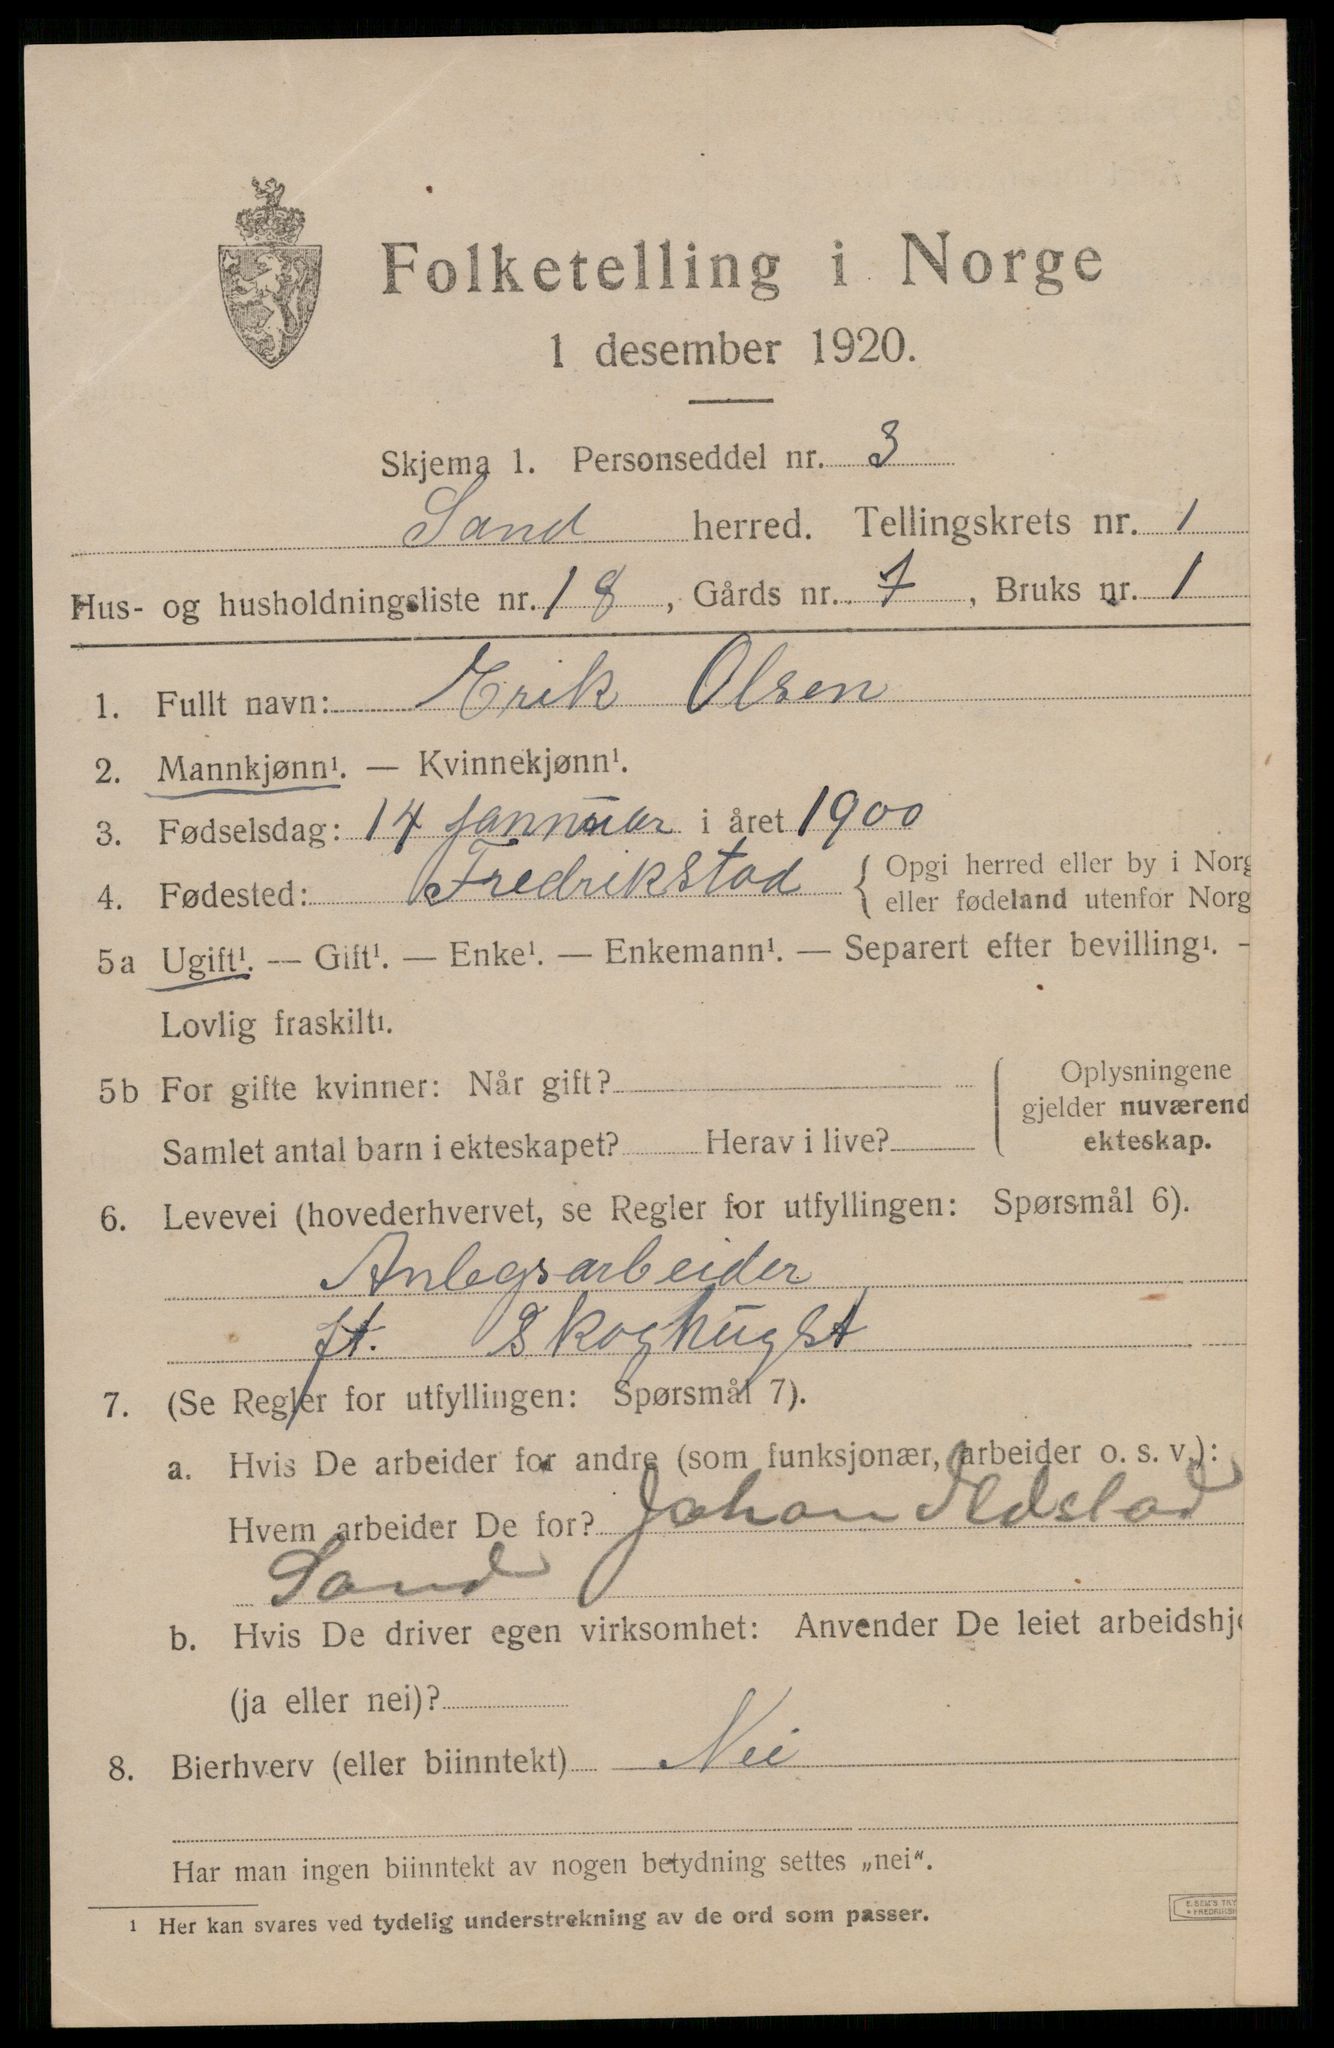 Folketelling i Norge
1 desember 1920.
Skjema 1. Personseddel nr. 3
Sand herred. Tellingskrets nr. 1
Hus- og husholdningsliste nr. 18, Gårds nr. 7, Bruks nr. 1
1. Fullt navn: Erik Olsen
2. Mannkjønn¹. — Kvinnekjønn¹.
3. Fødselsdag: 14 januar i året 1900
4. Fødested: Fredrikstad { Opgi herred eller by i Norg
eller fødeland utenfor Norg
5a Ugift¹. — Gift¹. — Enke¹. — Enkemann¹. — Separert efter bevilling¹. —
Lovlig fraskilt¹.
5b For gifte kvinner: Når gift? { Oplysningene
gjelder nuværend
Samlet antal barn i ekteskapet? Herav i live? ekteskap.
6. Levevei (hovederhvervet, se Regler for utfyllingen: Spørsmål 6).
Anlegsarbeider
ft. Skoghugst
7. (Se Regler for utfyllingen: Spørsmål 7).
a. Hvis De arbeider for andre (som funksjonær, arbeider o. s. v.):
Hvem arbeider De for? Johan
Sand
b. Hvis De driver egen virksomhet: Anvender De leiet arbeidshje
(ja eller nei)?
8. Bierhverv (eller biinntekt) Nei
Har man ingen biinntekt av nogen betydning settes „nei“.
¹ Her kan svares ved tydelig understrekning av de ord som passer.